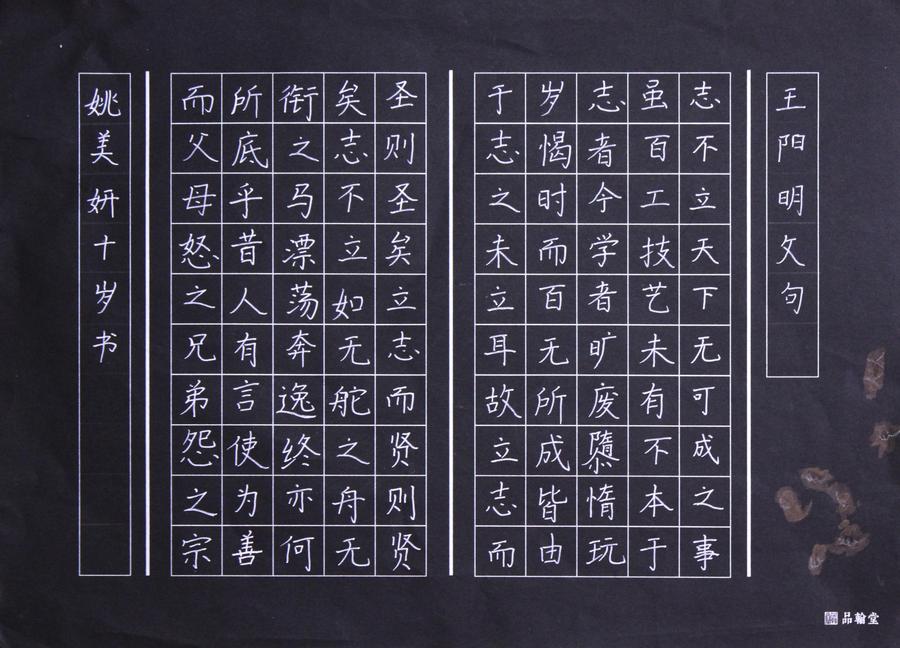 王阳明文句
志不立天下无可成之事
虽百工技艺未有不本于
志者今学者旷废隳惰玩
岁愒时而百无所成皆由
于志之未立耳故立志而
圣则圣矣立志而贤则贤
矣志不立如无舵之舟无
衔之马漂荡奔逸终亦何
所底乎昔人有言使为善
而父母怒之兄弟怨之宗
姚美妍十岁书
品翰堂